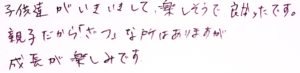 子供達がいきいきして、楽しそうで良かったです。
親子だから「ざつ」な所はありますが
成長が楽しみです